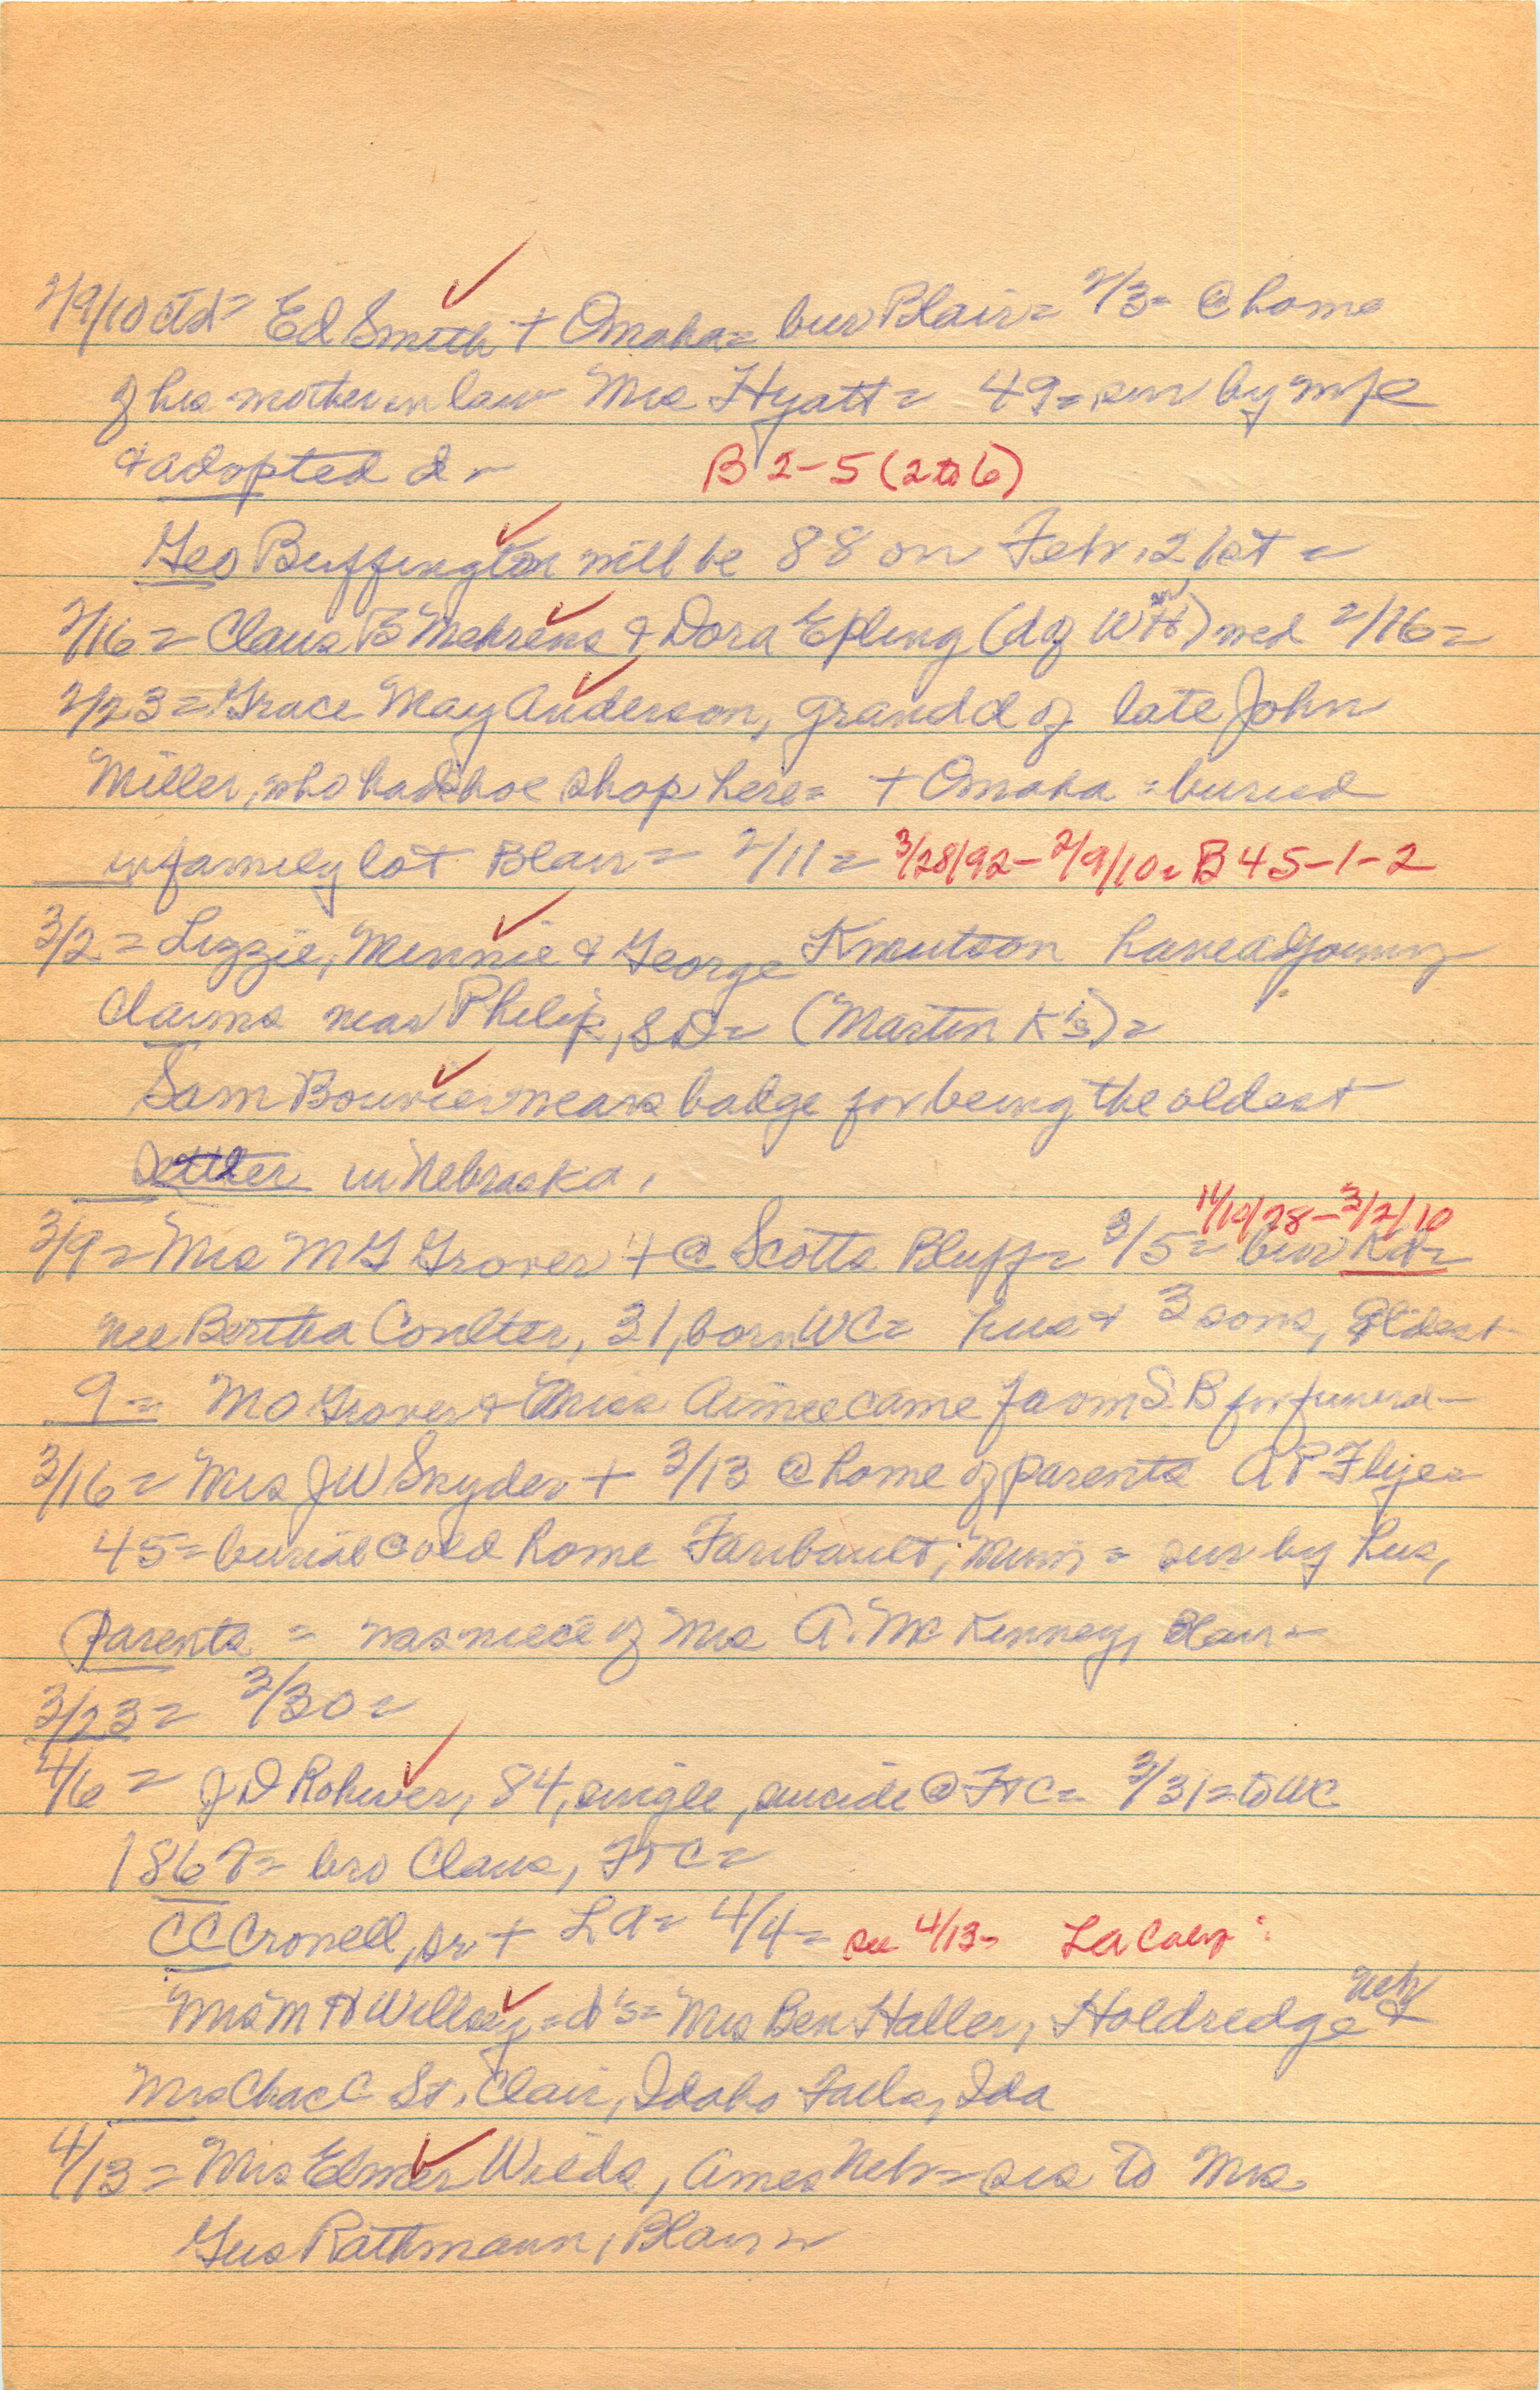 2/9/10 ctd= Ed Smith + Omaha= bur Blair= 2/3= @ home
of his mother in law Mrs Hyatt= 49= sur by wife
& adopted d= B 2-5 (2 to 6)
Geo Buffington will be 88 on Febr. 21st =
2/16= Claus B Mehrens & Dora Epling (d of WH) wed 2/16=
2/23= Grace May Anderson, grandd of late John
Miller, who had shoe shop here= + Omaha = buried
in family lot Blair= 2/11= 3/28/92-2/9/10= B 45-1-2
3/2= Lizzie, Minnie & George Knutson have adjoining
claims near Philip, SD= (Martin K's)=
Sam Bouvier wears badge for being the oldest
settler in Nebraska,
11/10/28-3/2/10
3/9= Mrs M G Grover + @ Scotts Bluff= 3/5= bur Kd=
nee Bertha Coulter, 31, born WC= hus & 3 sons, Eldest
9= M O Grover & Miss Aimee came from S B for funeral-
3/16= Mrs JW Snyder + 3/13 @ home of parents A P Flye=
45= burial @ old home Faribault, Minn= sur by hus,
parents = was niece of Mrs A. McKenney, Blair=
3/23= 3/30=
4/6= J D Rohwer, 84, single, suicide @ FtC= 3/31= to WC
186 = bro Claus, FtC=
CC Crowell, sr + LA= 4/4= see 4/13= La
Mrs M H Willsey= d's= Mrs Ben Haller, Holdredge Neb &
Mrs Chas C St. Clair, Idaho Falls, Ida
4/13= Mrs Elmer Wilds, Ames Nebr= sis to Mrs.
Gus Rathmann, Blair=